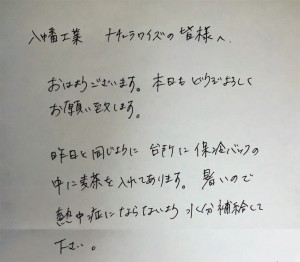 八幡工業　ナチュラワイズの皆様へ
おはようございます。本日もどうぞよろしく
お願い致します。
昨日と同じように台所に保冷バックの
中に麦茶を入れてあります。暑いので
熱中症にならないよう水分補給して
下さい。